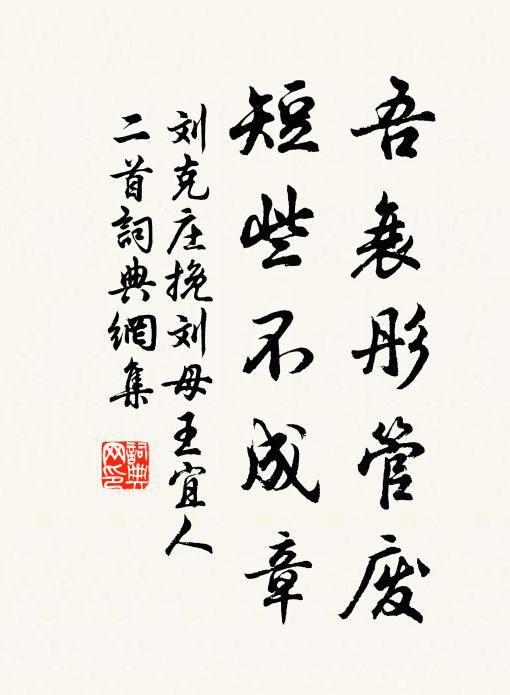 吾衰彤管废
短些不成章
刘克庄挽刘母王宜人
二首詞典網集
詞典
网印